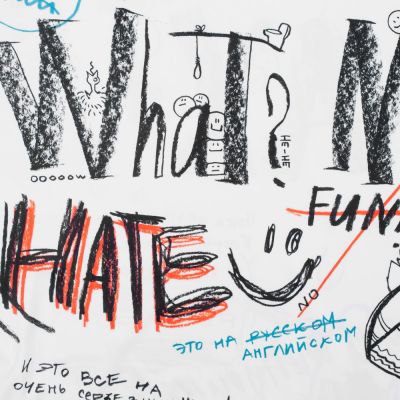 What?
HE-HE
OOOOOW
HATE
FUN
NO
ЭТО НА РУССКОМ
АНГЛИЙСКОМ
И ЭТО ВСЕ НА
ОЧЕНЬ